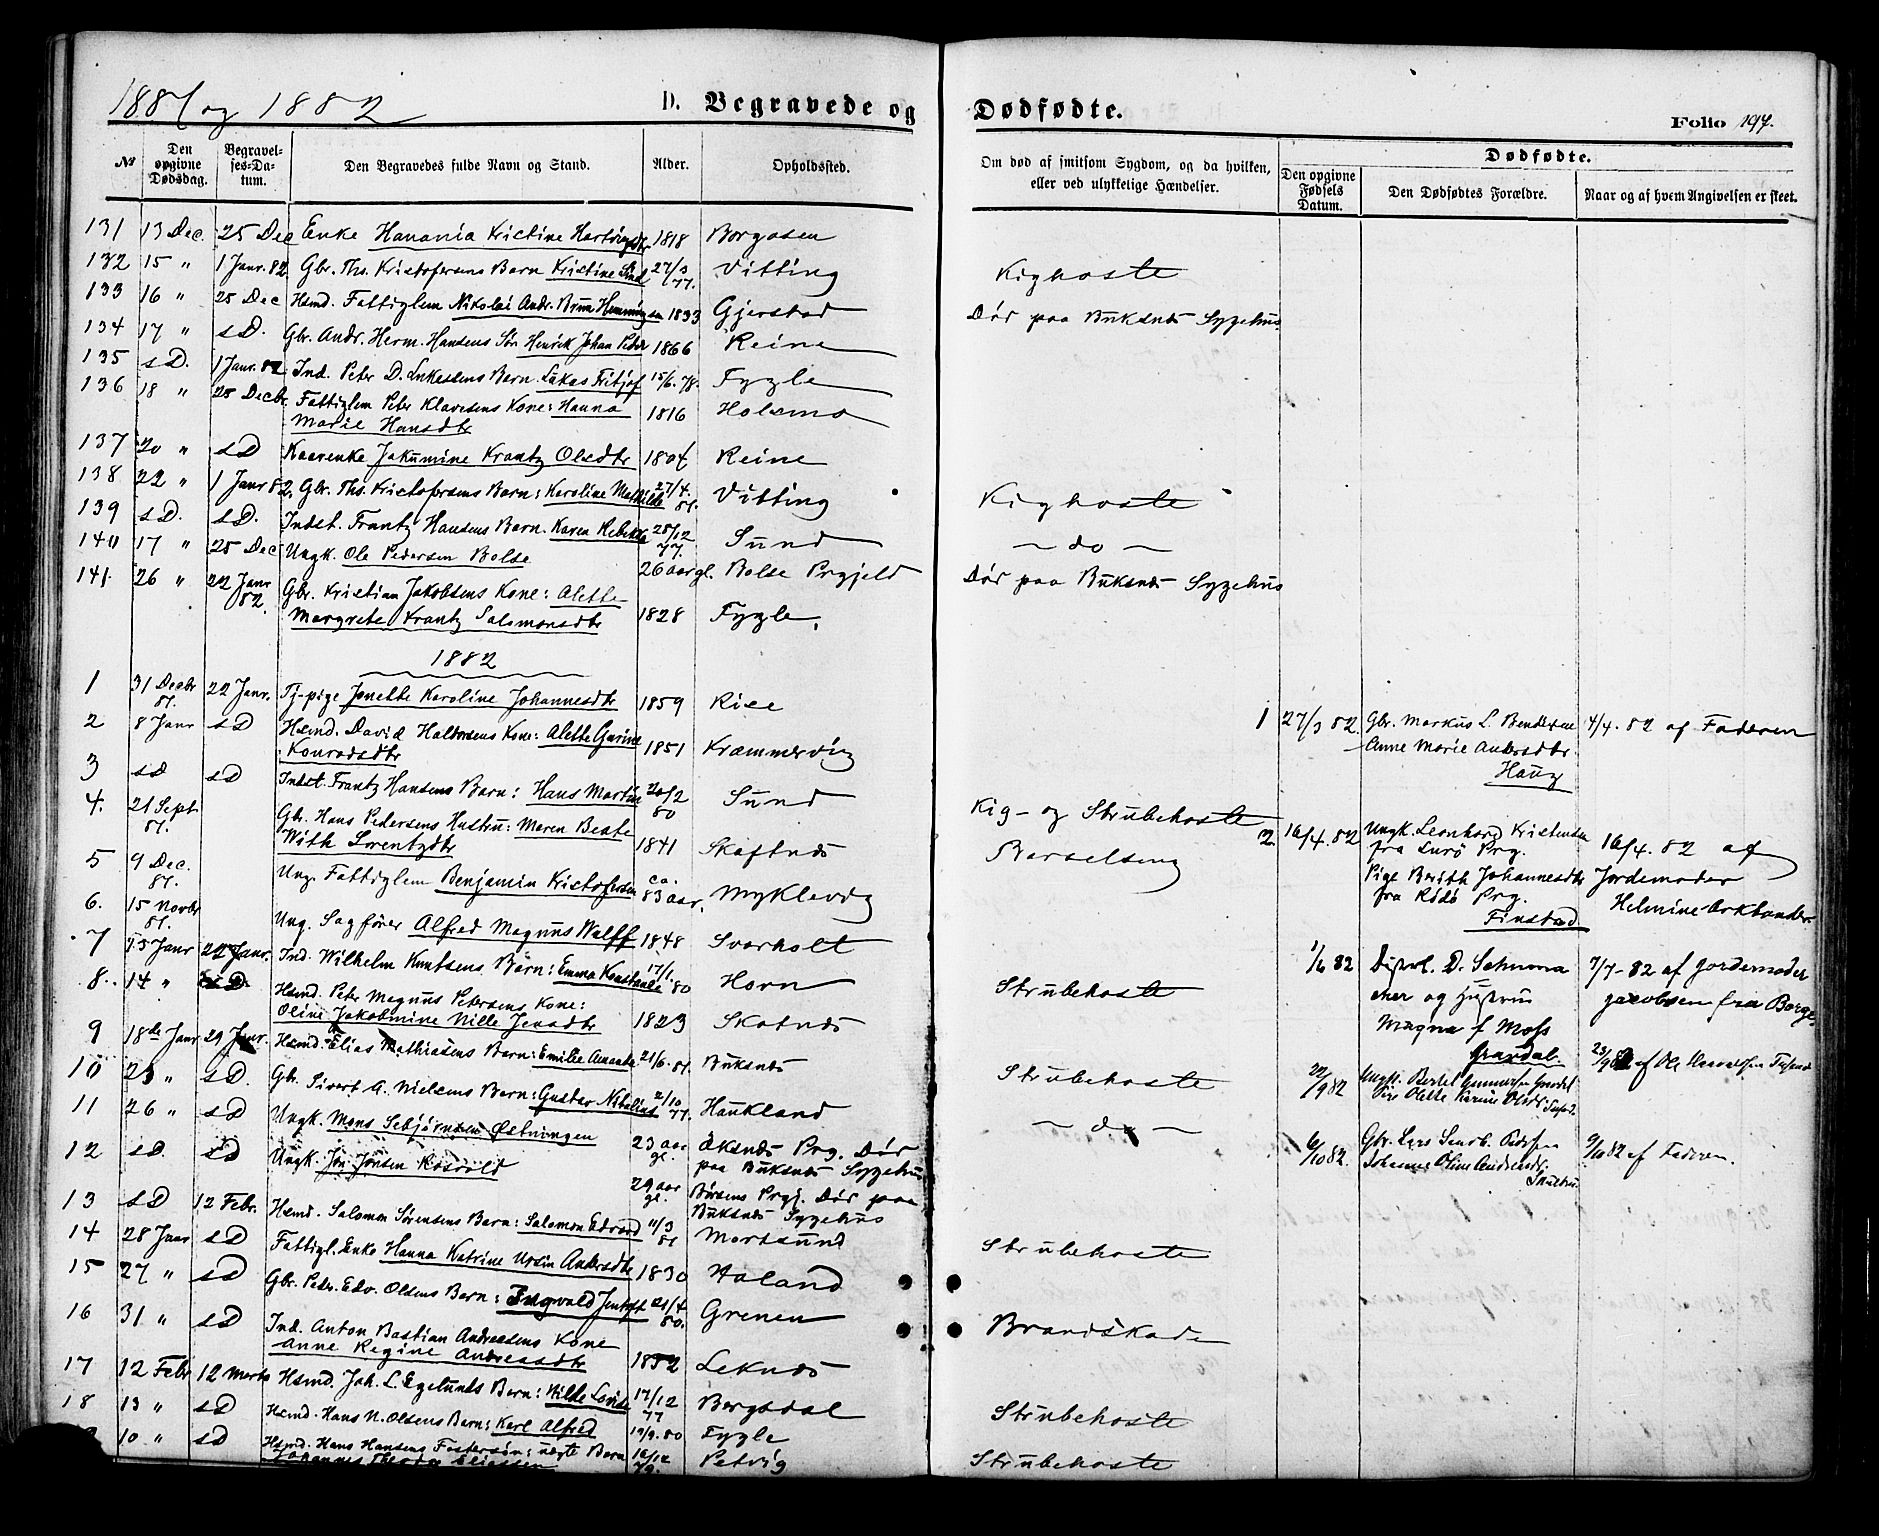 1881 og 1882
D. Begravede og
Dødfødte.
Folio 197.
№
Den opgivne Dødsdag.
Begravelses-Datum.
Den Begravedes fulde Navn og Stand.
Alder.
Opholdssted.
Om død af smitsom Sygdom, og da hvilken, eller ved ulykkelige Hændelser.
Dødfødte.
Den opgivne Fødsels Datum.
Den Dødfødtes Forældre.
Naar og af hvem Angivelsen er skeet.
131 13 Dec. 25 Dec Enke Hanania Kristine Hartvigsdtr 1818 Borgosen
132 15 " 1 Janr. 82 Gbr. Ths. Kristofersens Barn Kristine 27/3 77. Vitting Kighoste
133 16 " 25 Dec Hsmd. Fattiglem Nikolai Andr. Bruun Henningsen 1833 Gjerstad Død paa Buksnæs Sygehus.
134 17 " s.D. Gbr. Andr. Herm. Hansens Søn Henrik Johan Peder 1866 Reine
135 s.D. 1 Janr. 82 Ind. Peter D. Barn Lukas Fritjof 15/6. 78. Fygle
136 18 " 25 Decbr. Fattiglem Peter Klausens Kone: Hanna
Marie Hansdtr 1816 Holsmo
137 20 " s D Kaarenke Jakumine Krantz Olsdtr 1804 Reine
138 22 " 1 Janr 82. Gbr. Ths. Kristofersens Barn: Karoline Mathilde 27/4. 81. Vitting Kighoste
139 s.D. s.D. Indst. Frantz Hansens Barn. Karen Rebekka 28/12 77. Sund — do —
140 17 " 25 Dec Ungk. Ole Pedersen Bolse 26 aar gl. Bolse Prgjeld Død paa Buksnæs Sygehus
141. 26 " 22 Janr 82. Gbr. Kristian Jakobsens Kone: Alette
Margrete Krantz Salomonsdtr 1828 Fygle.
1882
1 31 Decbr 81. 22 Janr. Tj-pige Jonette Karoline Johannesdtr 1859 Rise
2 8 Janr s D Hsmd. David Haldorsens Kone: Alette Gurine
Konradsdtr 1851 Kræmmervig
3 s D s D Indst. Frantz Hansens Barn: Hans Martin 20/2 80 Sund Kig- og Strubehoste
4. 21 Sept. 81. Gbr. Hans Pedersens Hustru: Maren Beate
With Lorentzdtr 1841 Skaftnæs Barselseng
5 9 Dec. 81. Ung. Fattiglem Benjamin Kristofersen ca. 83 aar. Myklevig
6. 15 Novbr 81. Ung. Sagfører Alfred Magnus Wulff 1848 Svarholt
7 13 Janr 22 Janr. Ind. Wilhelm Knutsens Barn: Emma Konstanse 17/1. 80 Horn Strubehoste
8. 14 " s.D. Hsmd. Peter Magnus Petersens Kone:
Oline Jakobmine Nille Jensdtr 1823 Skotnæs
9 18de Janr 29 Janr. Hsmd. Elias Mathiasens Barn: Emilie Amanda 21/6. 81. Buksnæs Strubehoste
10 25 " s D. Gbr. Sivert A. Nielsens Barn: Gustav Nikolias 2/10 77. Haukland — do —
11 26 " s D Ungk. Mons Sebjørnsen Østningen 23 aar gl. Øksnæs Prg. Død
paa Buksnæs Sygehus
12 s.D. s D Ungk. Jon Jonsen Rosvold 29 aar gl. Børsens Prgj. Død paa
Buksnæs Sygehus
13 s D 12 Febr. Hsmd. Salomon Sørensens Barn: Salomon Edvard 11/3 81 Mortsund Strubehoste
14 28 Janr s D Fattigl. Enke Hanna Katrine Ursin Andersdtr 1830 Haland
15 27 " s D Gbr. Peder Edv. Olsens Barn: Ingvald Jentoft 21/4 80. Grenen Brandskade
16 31 " s D Ind. Anton Bastian Andreasens Kone
Anne Regine Andreasdtr 1852 Leknæs
17 12 Febr 12 Marts Hsmd. Joh. L. Egelunds Barn: Hilda Lovise 17/12 77 Bergsdal Strubehoste
18 13 " s D Hsmd. Hans N. Olsens Barn: Karl Alfred 19/9. 80 Fygle
10 " s D Hsmd. Hans Hansens Fostersøn: uægte Barn 16/12 79. Petvig Strubehoste
Johannes Theodor Eliassen
1 27/3 82. Gbr. Markus L. Bendixsen 4/4. 82 af Faderen
Anne Marie Andersdtr.
Haug
2. 16/4. 82 Ungk. Leonhard Kristensen
fra Lurø Prg. 16/4. 82 af
Pige Berith Johannesdtr Jordemoder
fra Rødø Prg. Helmine Arktander
Finstad
1/6 82 Distrl. D. Schuma 7/7-82 af Jordemoder
cher og Hustru Jacobsen fra Borge.
Magna f. Moss
Gravdal.
22/9 82 Ungk. Bertel Gunnarsen Gravdal 23/9 82 af
Pige Olette Karine Olsdtr
6/10 82. Gbr. Lars Senb. Pedersen 9/10 82 af Faderen.
Johanna Oline Andreasdtr.